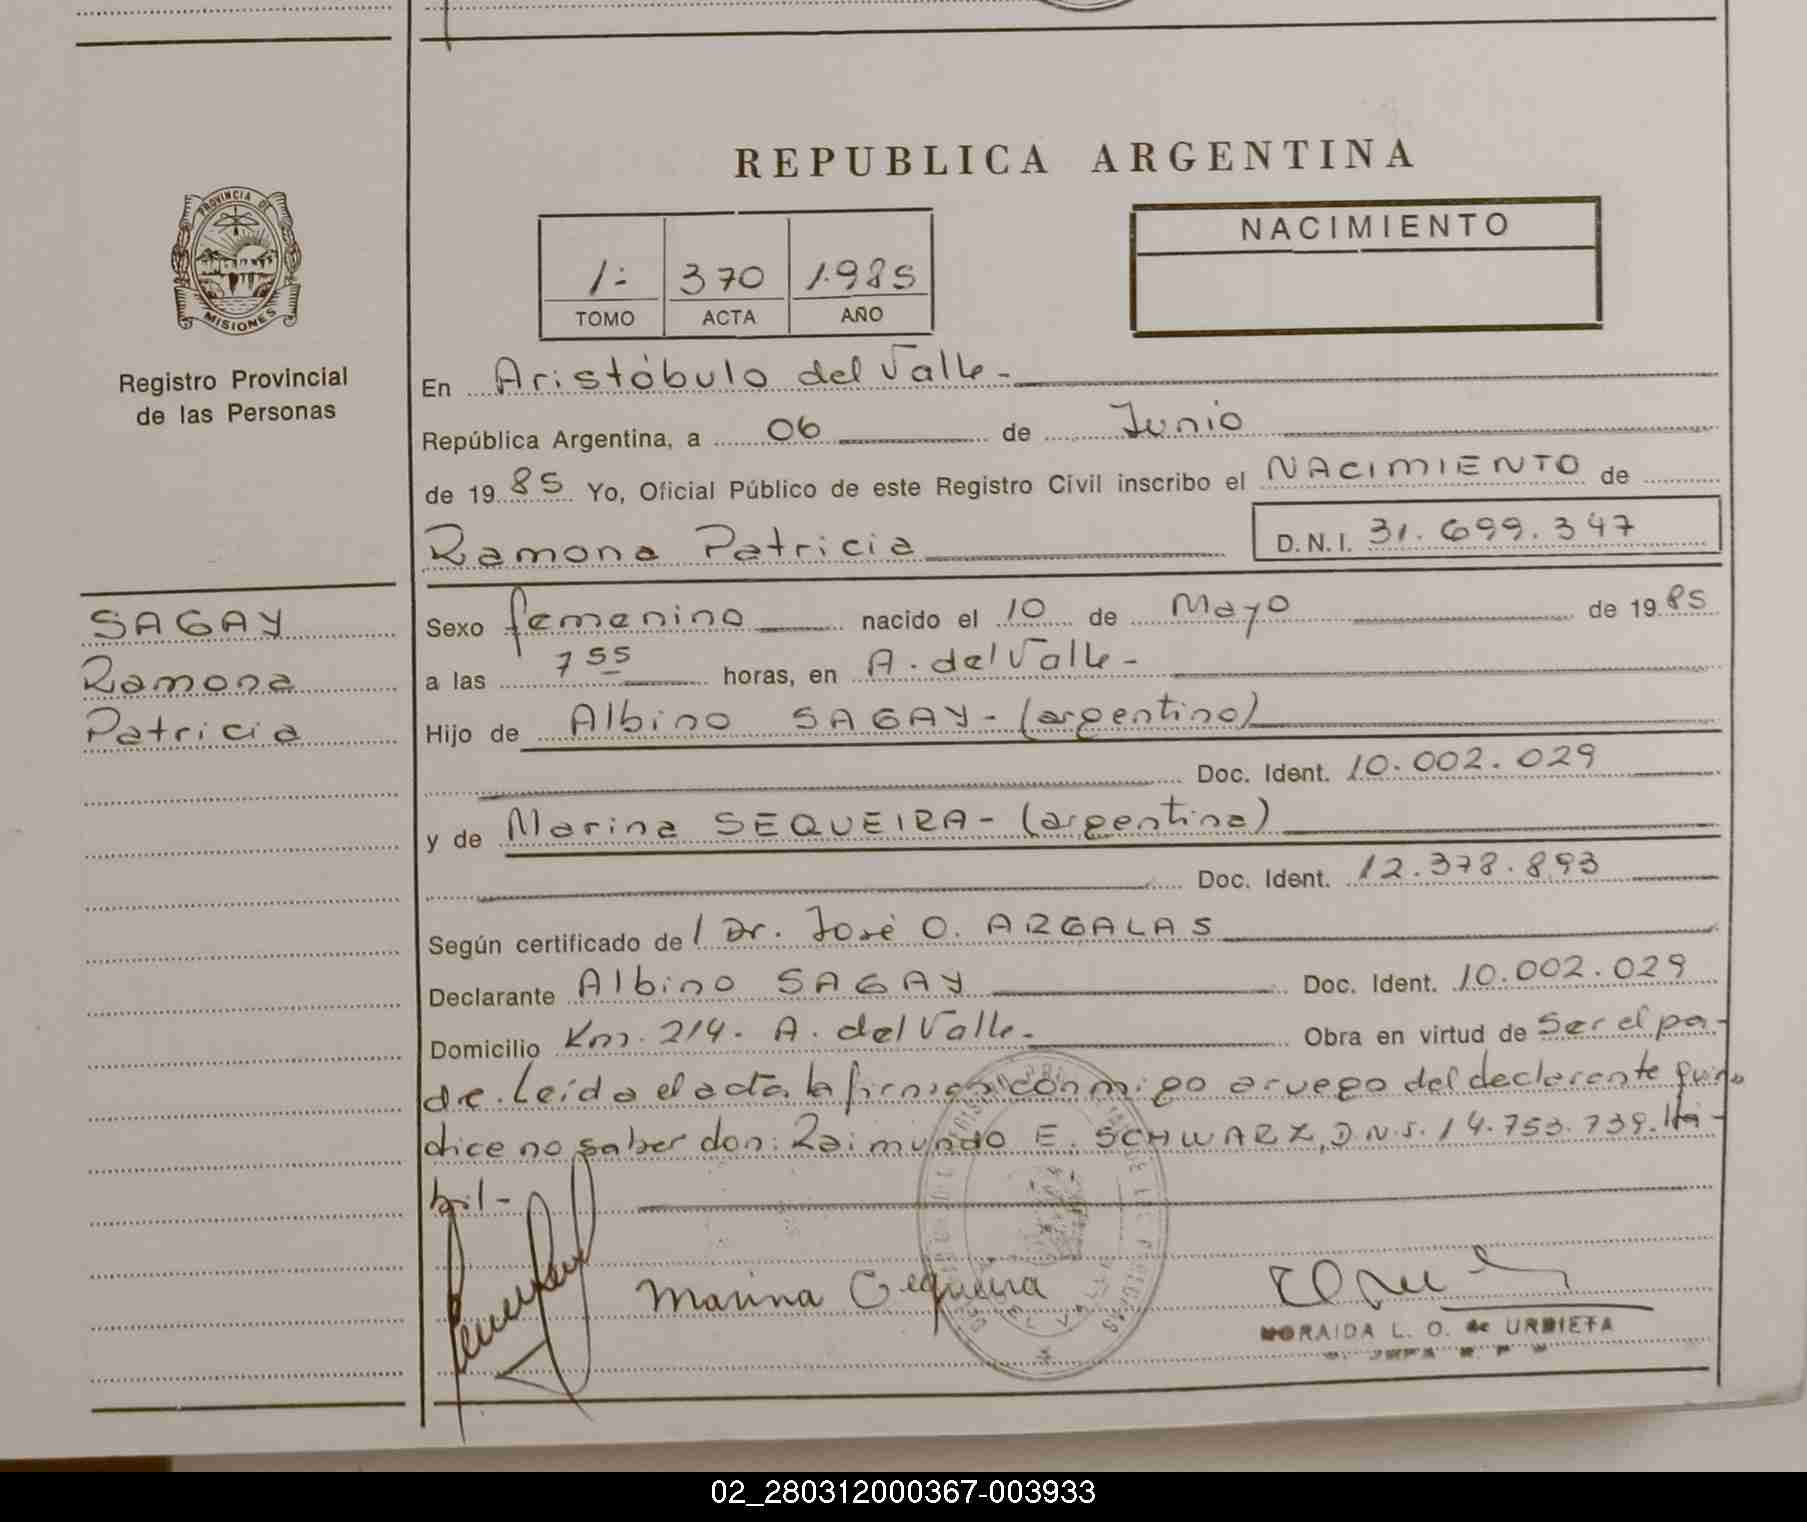 REPUBLICA ARGENTINA
PROVINCIA DE
MISIONES
Registro Provincial
de las Personas
1:
370
1.985
TOMO
ACTA
AÑO
NACIMIENTO
En Aristóbulo del Valle-
República Argentina, a 06 de Junio
de 1985 Yo, Oficial Público de este Registro Civil inscribo el NACIMIENTO de
Ramona Patricia D.N.I. 31.699.347
SAGAY
Ramona
Patricia
Sexo femenino nacido el 10 de Mayo de 1985
a las 7 55 horas, en A. del Valle-
Hijo de Albino SAGAY-(argentino)
Doc. Ident. 10.002.029
y de Marina SEQUEIRA-(argentina)
Doc. Ident. 12.378.893
Según certificado del Dr. José O. ARGALAS
Declarante Albino SAGAY Doc. Ident. 10.002.029
Domicilio Km. 214. A. del Valle- Obra en virtud de Ser el pa-
dre. Leída el acta la firman conmigo a ruego del declarante quien
dice no saber don: Raimundo E. SCHWARZ, D.N.I. 14.753.739. Há-
bil-
Marina Cequeira
NORAIDA L. O. de URBIETA
02_280312000367-003933